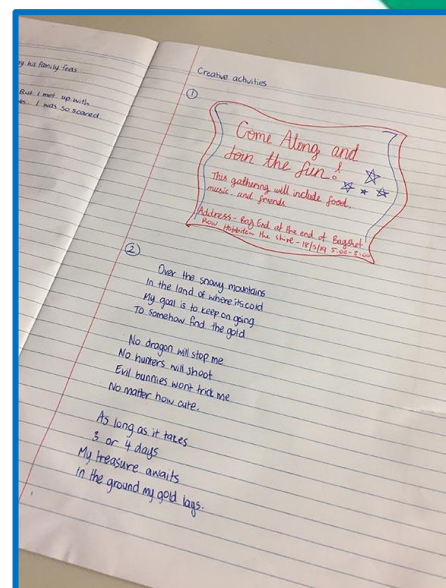 by his family fees
But I met up with
I was so scared.
Creative activities
1
Come Along and
Join the fun!
This gathering will include food,
music and friends
Address - Bag End at the end of Bagshot
Row Hobbiton the shire - 18/3/19 5:00-8:00
2
Over the snowy mountains
In the land of where its cold
My goal is to keep on going
To somehow find the gold
No dragon will stop me
No hunters will shoot
Evil bunnies wont trick me
No matter how cute.
As long as it takes
3 or 4 days
My treasure awaits
in the ground my gold lays.